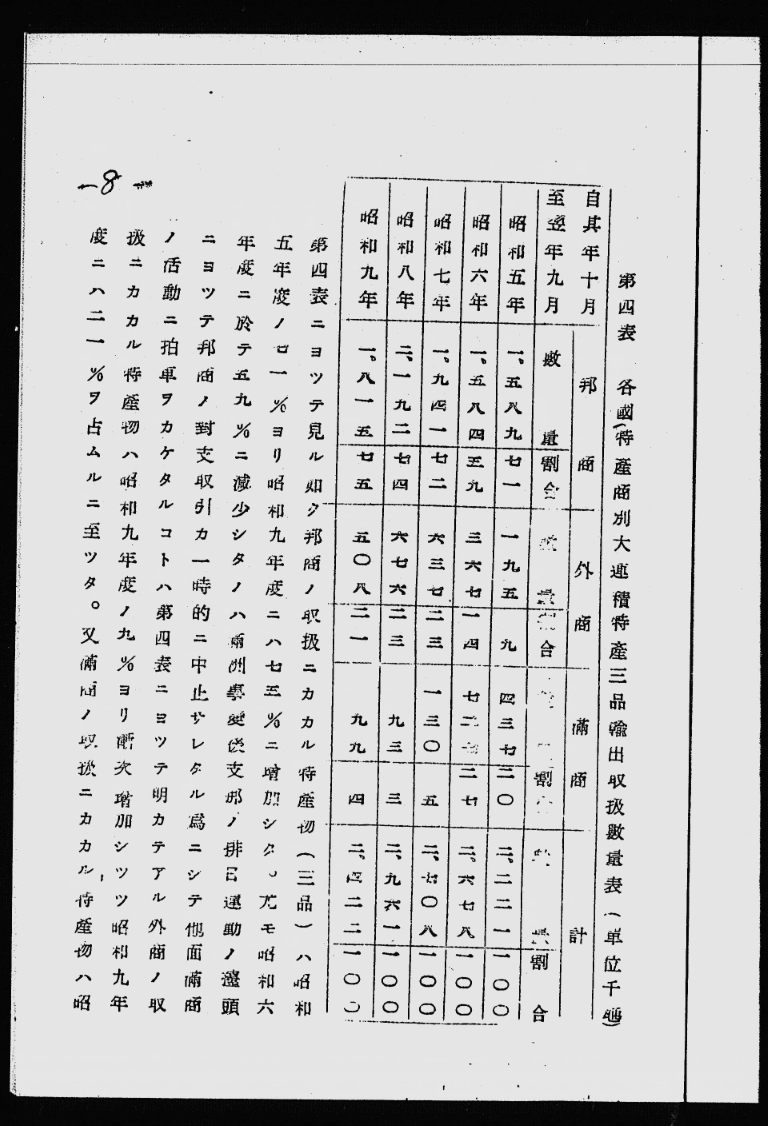 第四表　各國(特産商別大連積特産三品輸出取扱數量表(單位千噸)
自其年十月至翌年九月　邦商　外商　滿商　計
數量　割合　數量　割合　割合　割合
昭和五年　一、五八九　七一　一九五　九　四三七　二〇　二、二二一　一〇〇
昭和六年　一、五八四　五九　三六七　一四　七二七　二七　二、六七八　一〇〇
昭和七年　一、九四一　七二　六三七　二三　一三〇　五　二、七〇八　一〇〇
昭和八年　二、一九二　七四　六七六　二三　九三　三　二、九六一　一〇〇
昭和九年　一、八一五　七五　五〇八　二一　九九　四　二、四二二　一〇〇
第四表ニヨツテ見ル如ク邦商ノ取扱ニカカル特産物(三品)ハ昭和
五年度ノ七一％ヨリ昭和九年度ニハ七五％ニ增加シタ。尤モ昭和六
年度ニ於テ五九％ニ減少シタノハ滿洲事變後支那ノ排日運動ノ擡頭
ニヨツテ邦商ノ對支取引カ一時的ニ中止サレタル爲ニシテ他面滿商
ノ活動ニ拍車ヲカケタルコトハ第四表ニヨツテ明カテアル外商ノ取
扱ニカカル特産物ハ昭和九年度ノ九％ヨリ漸次增加シツツ昭和九年
度ニハ二一％ヲ占ムルニ至ツタ。又滿商ノ取扱ニカカル特産物ハ昭
-8-